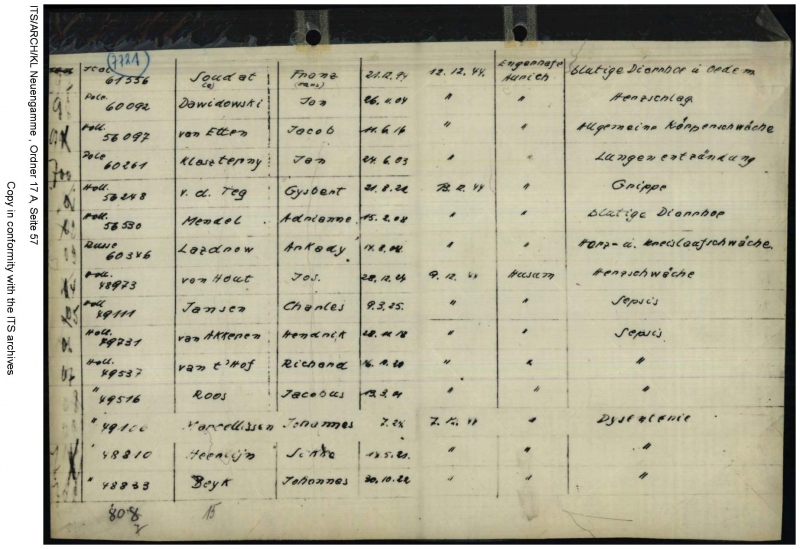 ITS/ARCH/KL Neuengamme, Ordner 17 A, Seite 57
Copy in conformity with the ITS archives
7721
61556 Soudat Franz 12.12.44. Engerhafe Aurich blutige Diarrhoe u Oedem
(e) (ans)
Pole 60092 Dawidowski Jan 26.11.04 " " Herzschlag
Holl. 56097 van Etten Jacob 11.6.16 " " Allgemeine Körperschwäche
Pole 60261 Klaszterny Jan 24.6.03 " " Lungenentzündung
Holl. 56248 v. d. Teg Gysbert 21.8.22 12.44 " Grippe
Holl. 56530 Mendel Adrianne 15.2.08 " " blutige Diarrhoe
Russe 60346 Lazdnow Arkady " " Herz- u. Kreislaufschwäche.
Holl. 48973 van Hout Jos. 28.12.24 9.12.44 Husum Herzschwäche
Holl 49111 Jansen Charles 9.3.25. " " Sepsis
Holl. 49731 van Akkeren Hendrik 28.11.18 " " Sepsis
Holl. 49537 van t'Hof Richard 16.11.20 " " "
" 49516 Roos Jacobus 13.3.01 " " "
" Marcellissen Johannes 7.12.44 " Dysenterie
" 48810 Heerlijn Sikke " " "
" 48833 Beyk Johannes 30.10.22 " " "
808 15